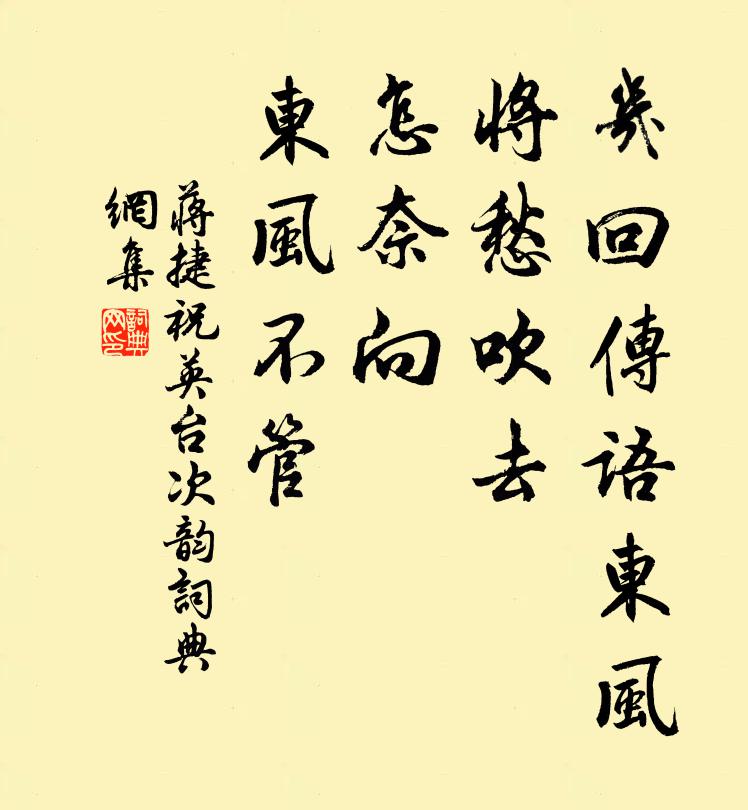 幾回傳語東風
將愁吹去
怎奈向
東風不管
蔣捷祝英台次韵詞典
網集
詞典
网印